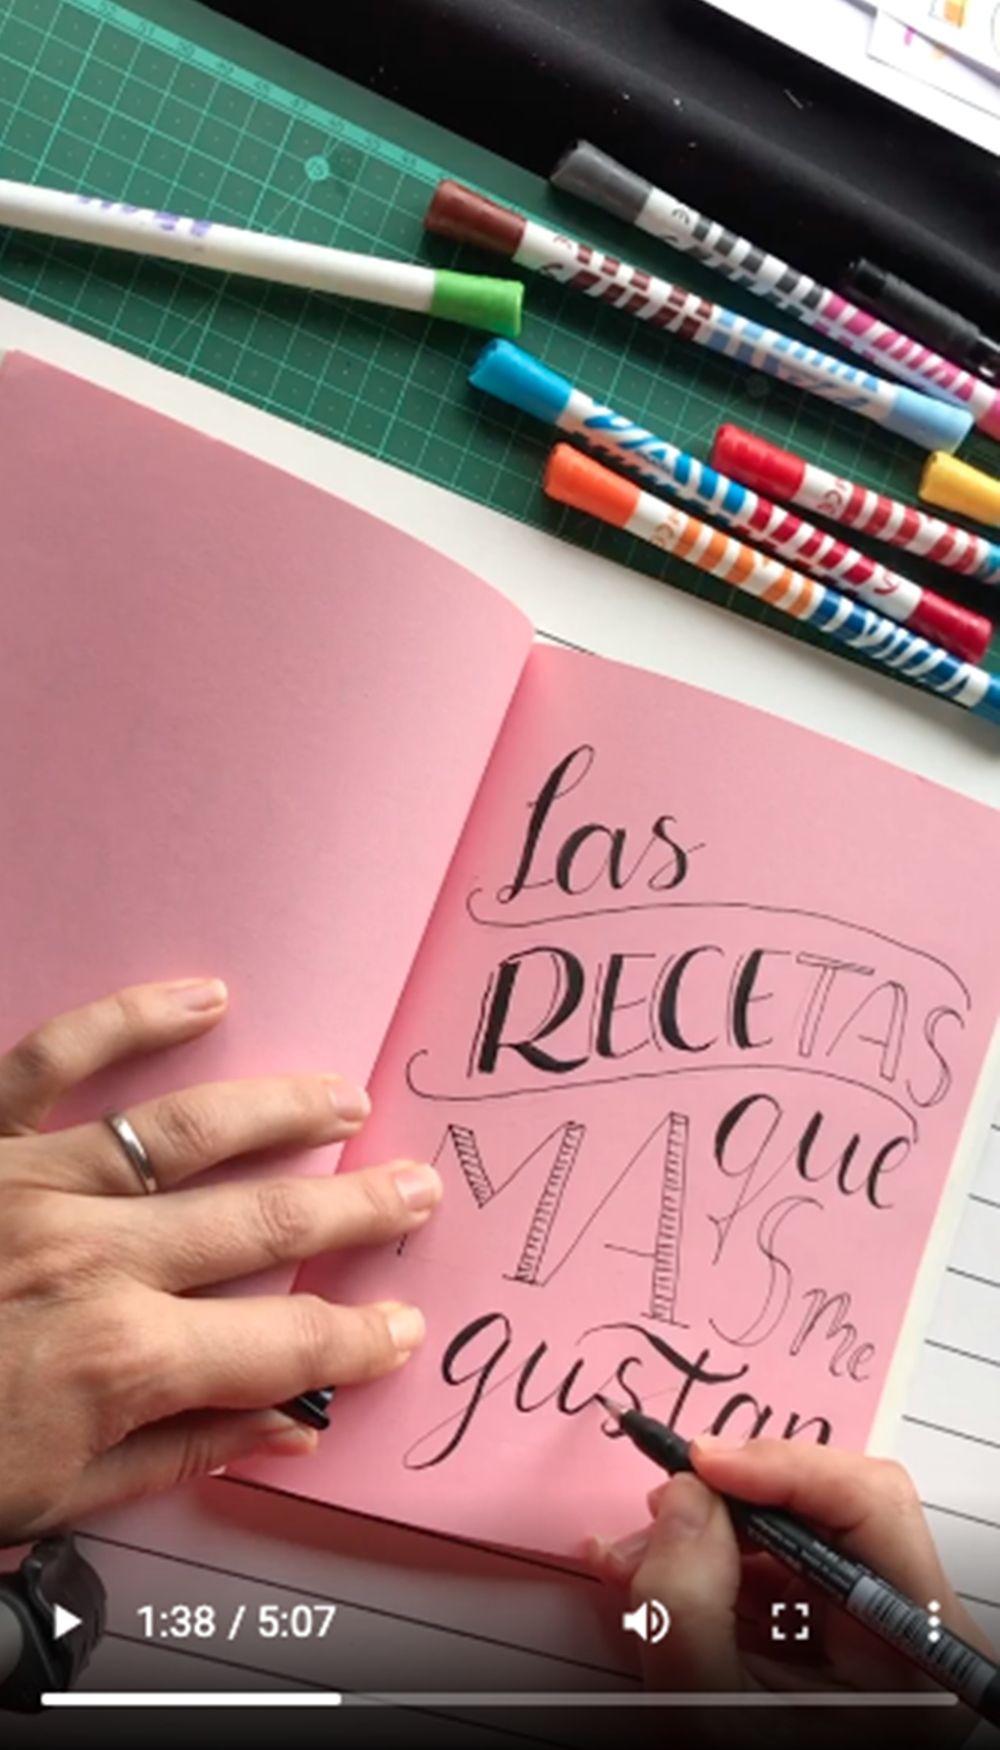 Las
RECETAS
que
MÁS
me
gustan
1:38 / 5:07